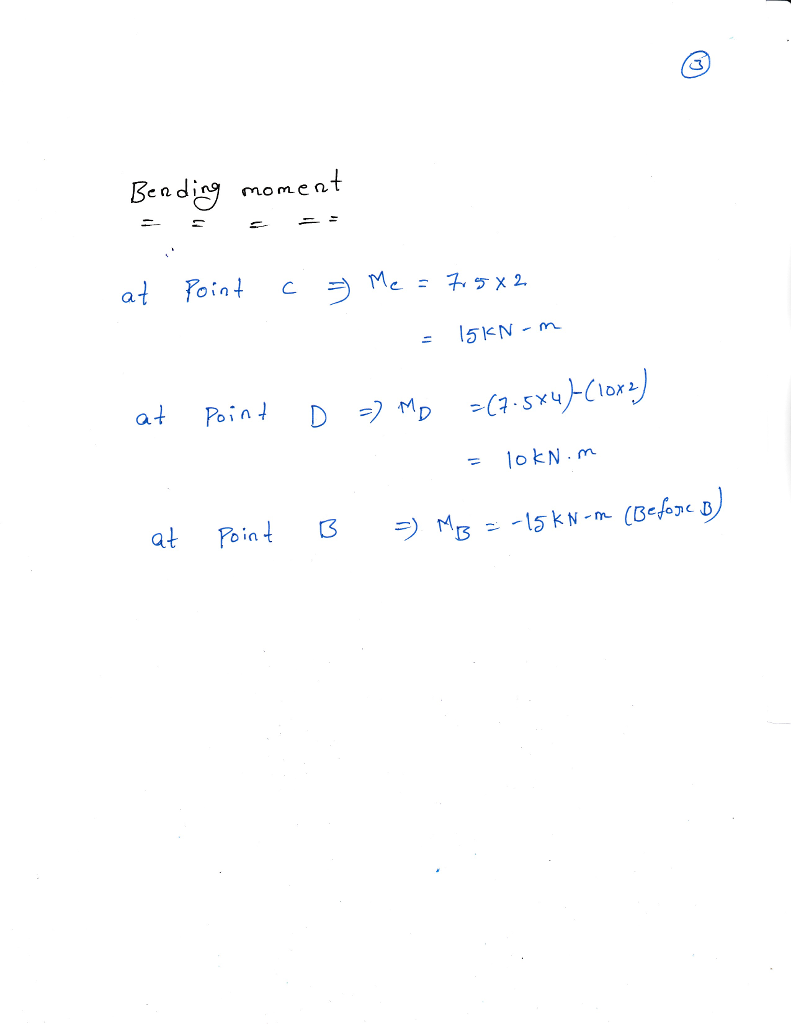 3
Bending moment
= = = = =
at Point C ⇒ Mc = 7.5 x 2
= 15KN-m
at Point D => MD = (7.5x4)-(10x2)
= 10kN.m
at Point B => MB = -15KN-m (Before B)